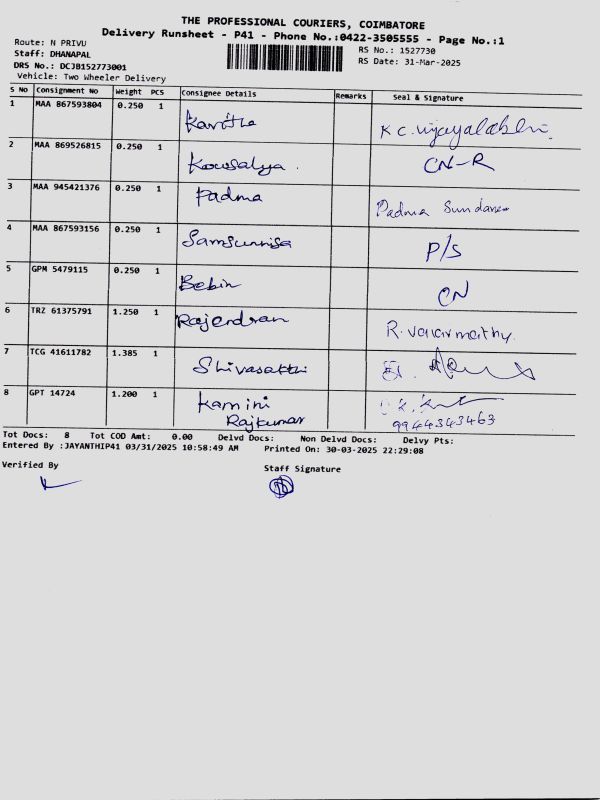 THE PROFESSIONAL COURIERS, COIMBATORE
Delivery Runsheet - P41 - Phone No.:0422-3505555 - Page No.:1
Route: N PRIVU
RS No.: 1527730
Staff: DHANAPAL
RS Date: 31-Mar-2025
DRS No.: DCJB152773001
Vehicle: Two Wheeler Delivery
S No Consignment No Weight PCS Consignee Details Remarks Seal & Signature
1 MAA 867593804 0.250 1 Kavitha K C. Vijayalakshmi
2 MAA 869526815 0.250 1 Kowsalya. CN-R
3 MAA 945421376 0.250 1 Padma Padma Sundaram
4 MAA 867593156 0.250 1 Samsunnisa P/S
5 GPM 5479115 0.250 1 Bebin CN
6 TRZ 61375791 1.250 1 Rajendran R. Valarmathy.
7 TCG 41611782 1.385 1 Shivasakthi
8 GPT 14724 1.200 1 Kamini
Rajkumar 9944343463
Tot Docs: 8 Tot COD Amt: 0.00 Delvd Docs: Non Delvd Docs: Delvy Pts:
Entered By :JAYANTHIP41 03/31/2025 10:58:49 AM Printed On: 30-03-2025 22:29:08
Verified By
Staff Signature